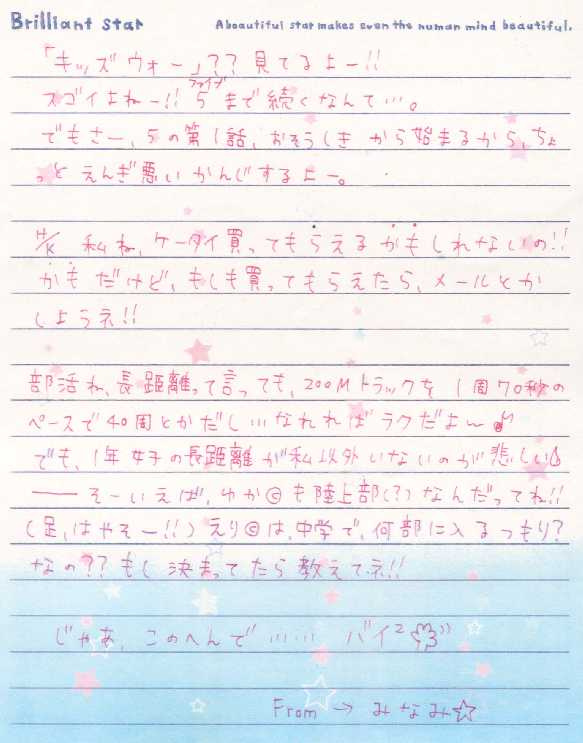 Brilliant star
A beautiful star makes even the human mind beautiful.
「キッズウォー」??見てるよー!!
スゴイよねー!! 5 まで続くなんて…。
ファイブ
でもさー、5の第1話、おそうしきから始まるから、ちょ
っとえんぎ悪いかんじするよー。
H/K 私ね、ケータイ買ってもらえるかもしれないの!!
かもだけど、もしも買ってもらえたら、メールとか
しようネ!!
部活ね、長距離って言っても、200Mトラックを1周70秒の
ペースで40周とかだし…なれればラクだよ〜♪
でも、1年女子の長距離が私以外いないのが悲しい
――そーいえば、ゆか©も陸上部(?)なんだってね!!
(足、はやそー!!)えり©は、中学で、何部に入るつもり?
なの??もし決まってたら教えてネ!!
じゃあ、このへんで…… バイ²
From → みなみ☆